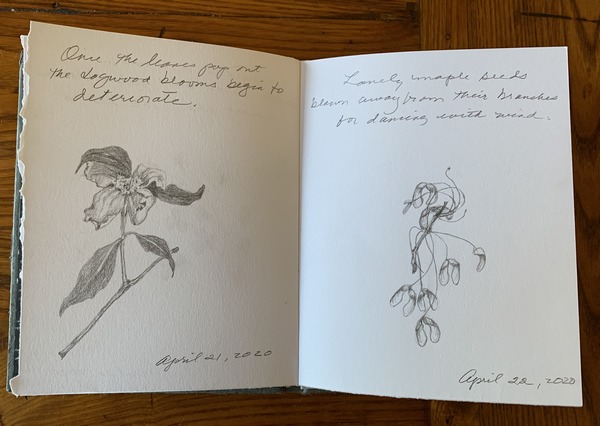 Once the leaves pop out
the dogwood blooms begin to
deteriorate.
April 21, 2020
Lonely maple seeds
blown away from their branches
for dancing with wind.
April 22, 2020